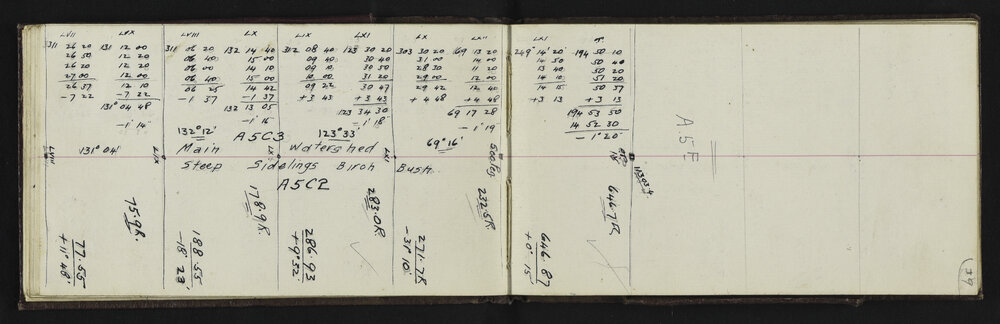 LVII LX LIX LXI LX LXII LXI T
311 26 20 131 12 00 311 06 20 132 14 40 312 08 40 123 30 20 303 30 20 69 13 20 249° 14' 20" 194 50 10
26 50 12 20 06 40 15 00 09 40 30 40 31 00 14 00 14 50 50 40
26 20 12 20 06 00 14 10 09 10 30 50 28 30 11 20 13 40 50 20
27 00 12 00 06 40 15 00 10 00 31 20 29 00 12 00 14 10 51 20
26 37 12 10 06 25 14 42 09 22 30 47 29 42 12 40 14 15 50 37
-7 22 -7 22 -1 37 -1 37 +3 43 +3 43 +4 48 +4 48 +3 13 +3 13
131° 04 48 132 13 05 123 34 30 69 17 28 194 53 50
-1' 14" -1' 16 -1' 18" -1' 19 14 52 30
-1' 20"
132° 12' A5C3 123° 33' 69° 16'
LVIII 131° 04' LIX Main LX Watershed LXI
Steep Sidelings Birch Bush
A5C2
A.5.E
75.9R.
77.55
+11° 48'
178.9R.
188.55
-18' 23'
283.0R.
286.93
+9° 32'
232.5R
271.7R
-31° 10'
646.7R
646.87
+0° 15'
39